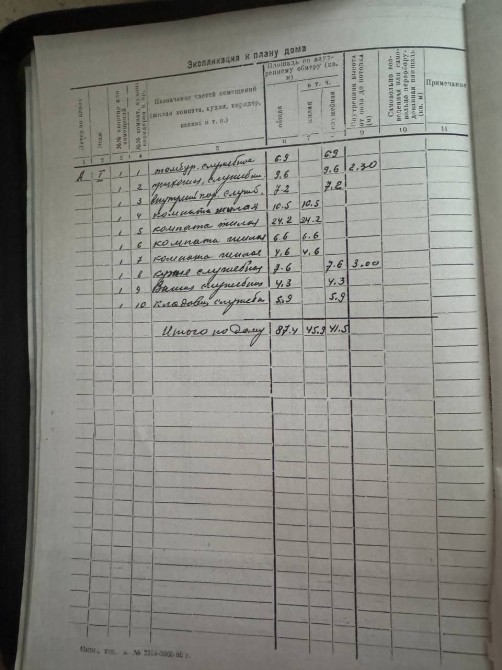 Экспликация к плану дома
Литер по плану
Этаж
Назначение частей помещений
(жилая комната, кухня, коридор,
и т. п.)
Площадь по внут-
реннему обмеру (кв.
м)
в т. ч.
общая
жилая
служебная
Внутренняя высота
от пола до потолка
(м)
Примечание
1 2 3 4 5 6 7 8 9 10 11
А I 1 1 тамбур, служебное 6.9 6.9
1 2 прихожая, служебн. 9.6 9.6 2.30
1 3 внутрен. под. служб. 7.2 7.2
1 4 комната жилая 10.5 10.5
1 5 комната жилая 24.2 24.2
1 6 комната жилая 6.6 6.6
1 7 комната жилая 4.6 4.6
1 8 кухня служебная 7.6 7.6 3.00
1 9 Ванная служебная 4.3 4.3
1 10 кладовая служебн 5.9 5.9
Итого по дому 87.4 45.9 41.5